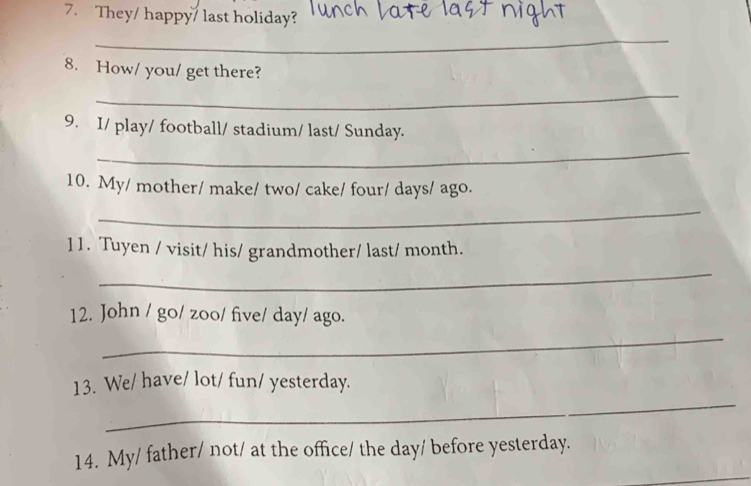 7. They/ happy/ last holiday? lunch late last night
8. How/ you/ get there?
9. I/ play/ football/ stadium/ last/ Sunday.
10. My/ mother/ make/ two/ cake/ four/ days/ ago.
11. Tuyen / visit/ his/ grandmother/ last/ month.
12. John / go/ zoo/ five/ day/ ago.
13. We/ have/ lot/ fun/ yesterday.
14. My/ father/ not/ at the office/ the day/ before yesterday.